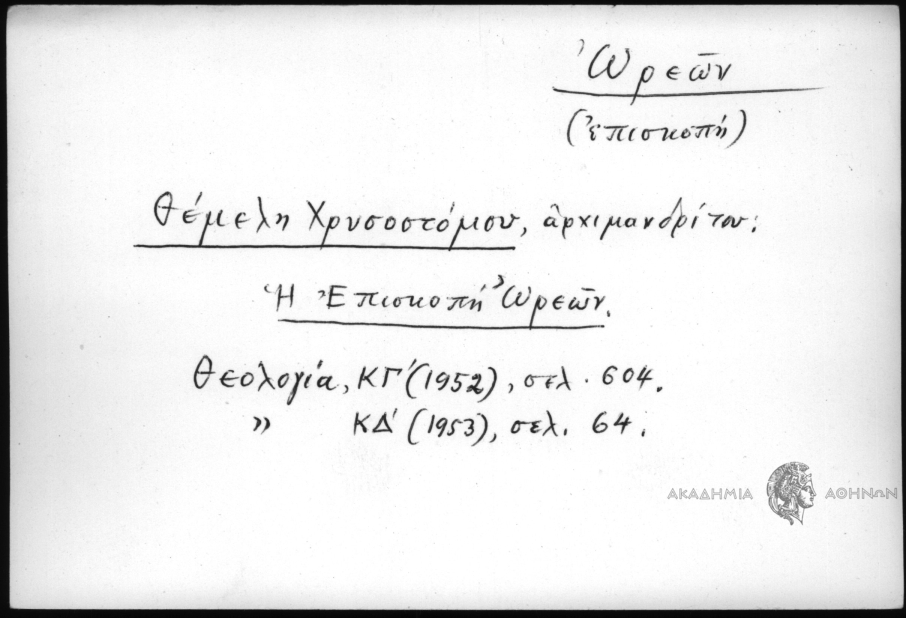 Ὠρεῶν
(ἐπισκοπή)
Θέμελη Χρυσοστόμου, ἀρχιμανδρίτου:
Ἡ Ἐπισκοπή Ὠρεῶν.
Θεολογία, ΚΓ' (1952), σελ. 604.
» ΚΔ' (1953), σελ. 64.
ΑΚΑΔΗΜΙΑ ΑΘΗΝΩΝ